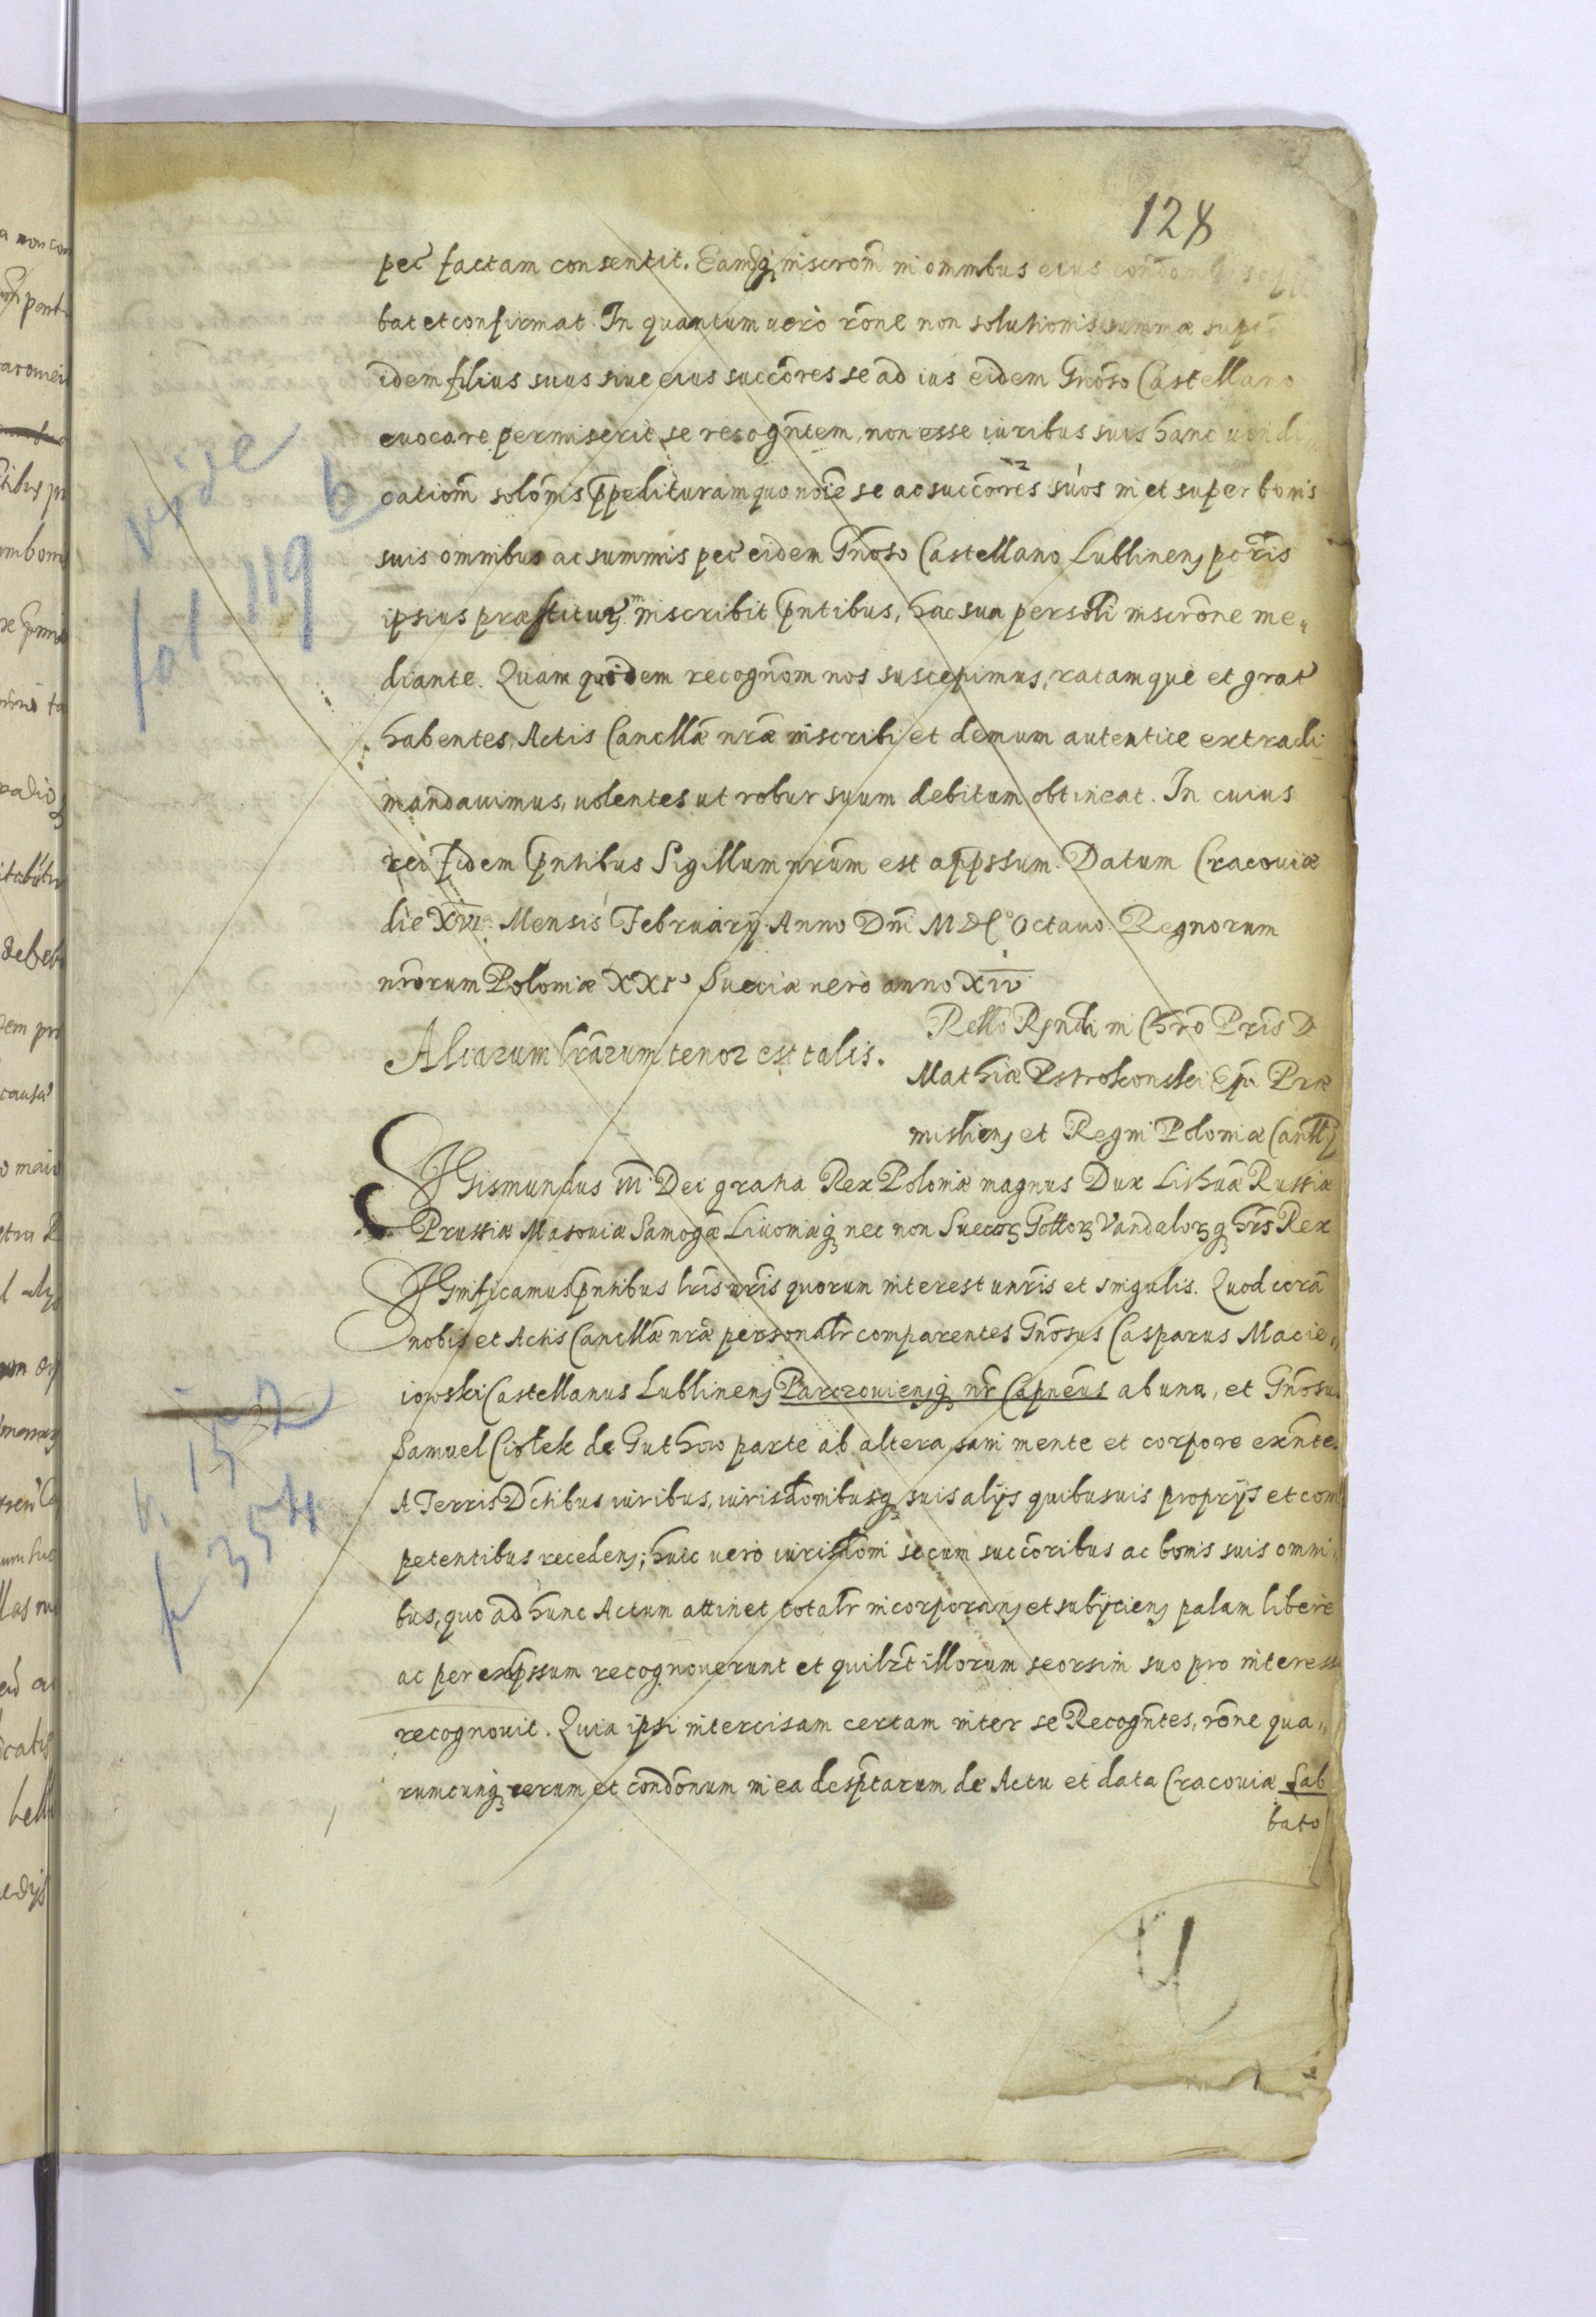 128
pec̃ factam consentit. Eamq̃ inscrom̃ in omnibus eius
bat et confirmat. In quantum uerò rõne non solutionis summæ
idem filius suus siue eius succõres se ad ius eidem Gñoso Castellano
euocare permiserit, se recogñtem, non esse iuribus suis hanc
catiom̃ solõms p̃pedituram quo noĩe se ac succõres suos in et super bonis
suis omnibus ac summis pec̃ eidem Gñoso Castellano Lublinenȷ
ipsius inscribit p̃ntibus, hac sua inscrõne me„
diante. Quam quidem recognõm nos suscepimus, ratamque et grat̃
habentes, Actis Cancllã nrã inscribi et demum autentice extradi
mandauimus, uolentes ut robur suum debitum obtineat. In cuius
rei fidem p̃ntibus Sigillum nrũm est app̃ssum. Datum Cracouiæ
die XVIa Mensis February Anno Dni M DCo Octauo. Regnorum
nrõrum Poloniæ XXIo Sueciæ uerò anno XIV
Aliarum lrãrum tenor est talis.
Rellõ Rṽndi in Chrõ Pris D
Mathiæ Pstrokonski Ep̃i Præ
misliens et Regni Poloniæ Canllȷ̃
SIGismundus III Dei gratia Rex Poloniæ magnus Dux Lithuã Russiæ
Prussiæ Masouiæ Samogã Liuoniæq̃ nec non Suecorꝫ Gottorꝫ Vandalorꝫq̃ hrs̃ Rex
SIGnificamus p̃ntibus lris̃ nris̃ quorum interest unris̃ et singulis. Quod corã
nobis et Actis Cancllã nrã personalr̃ comparentes Gñosus Casparus Macie„
iowski Castellanus Lublinenȷ Parczouienȷq̃ nr̃ Capnẽus ab una, et Gñosus
Samuel Ciołek de Guthow parte ab altera sani mente et corpore exñtes
A Terris Dc̃tibus iuribus, iurisdõmibusq̃ suis alijs quibusuis proprijs et com
petentibus recedenȷ; huic uerò iurisdõni se cum succõribus ac bonis suis omni
bus, quo ad hunc Actum attinet totalr̃ incorporanȷ et subijcienȷ palam libere
ac per exp̃ssum recognouerunt et quilr̃t illorum seorsim suo pro interesse
recognouit. Quia ipsi intercisam certam inter se Recogñtes, rõne qua„
rumcunq̃ rerum et condõnum in ea desp̃tarum de Actu et data Cracouiæ Sab
bato
vide
fol 119 b
v. 152
f 354